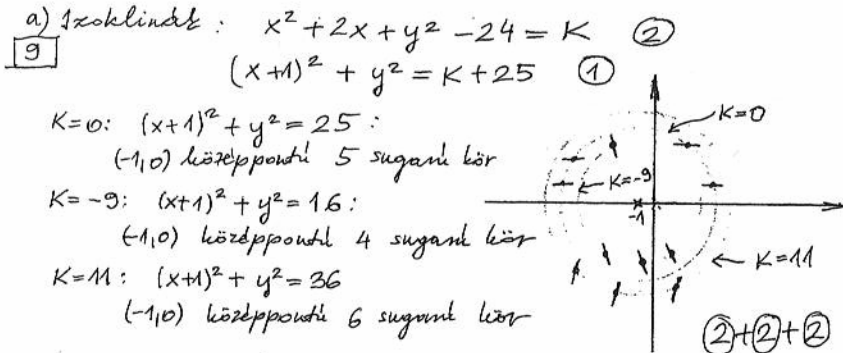 a) Izoklinák : x² + 2x + y² - 24 = K ②
9
(x+1)² + y² = K + 25 ①
K=0: (x+1)² + y² = 25 :
(-1,0) középpontú 5 sugarú kör
K= -9: (x+1)² + y² = 16 :
(-1,0) középpontú 4 sugarú kör
K=11 : (x+1)² + y² = 36
(-1,0) középpontú 6 sugarú kör
K=0
K=-9
-1
K=11
②+②+②